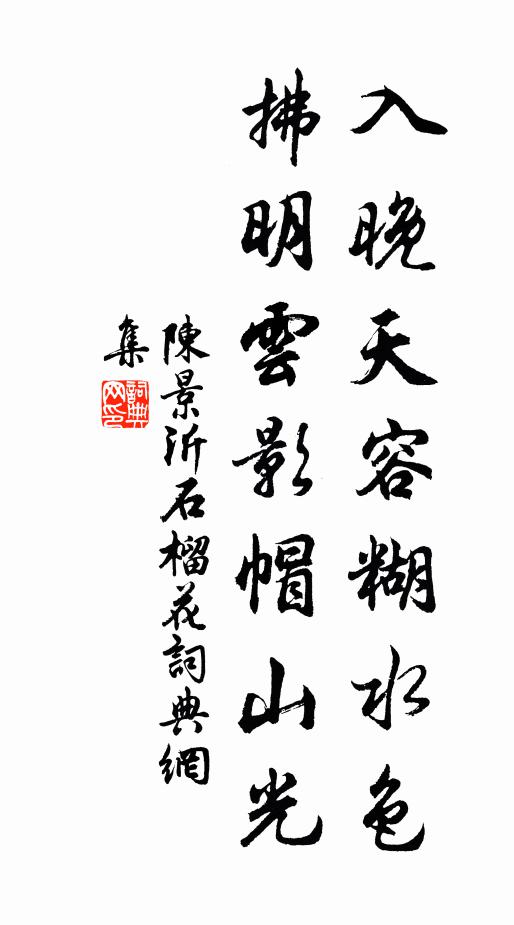 入晚天容糊水色
拂明雲影帽山光
陳景沂石榴花詞典網
集
詞典
网印